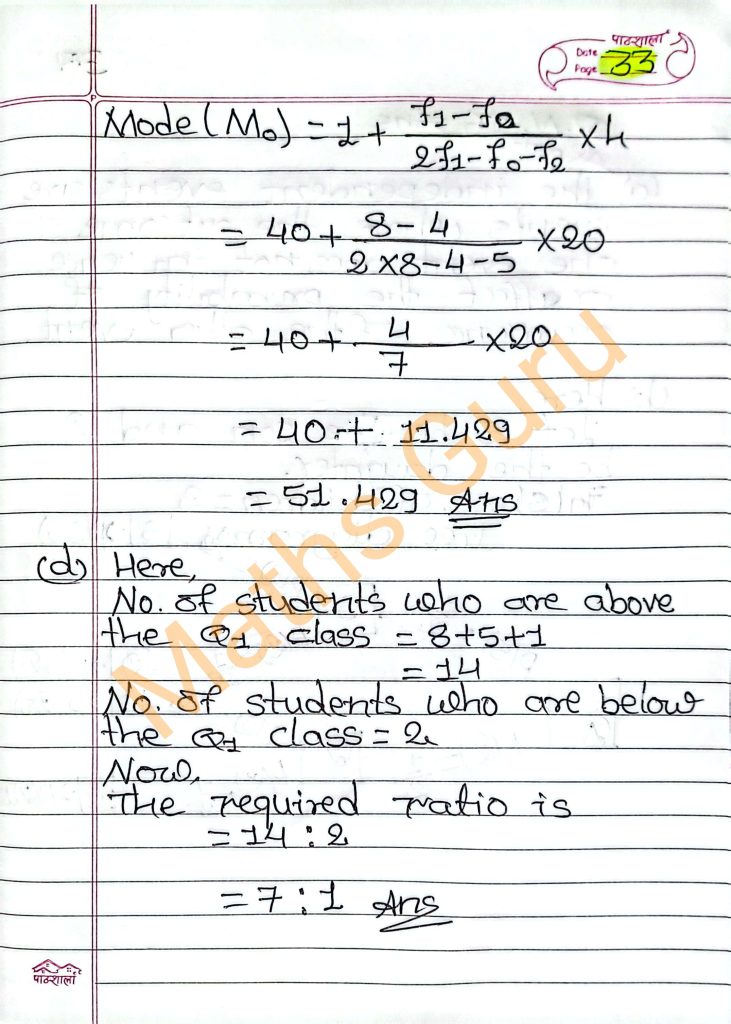 पाठशाला
Date
Page 33
Mode (Mo) = l + f1 - f0 / 2f1 - f0 - f2 × h
= 40 + 8 - 4 / 2×8 - 4 - 5 × 20
= 40 + 4 / 7 × 20
= 40 + 11.429
= 51.429 Ans
(d) Here,
No. of students who are above
the Q1 class = 8+5+1
= 14
No. of students who are below
the Q1 class = 2
Now,
The required ratio is
= 14 : 2
= 7 : 1 Ans
Maths Guru
पाठशाला